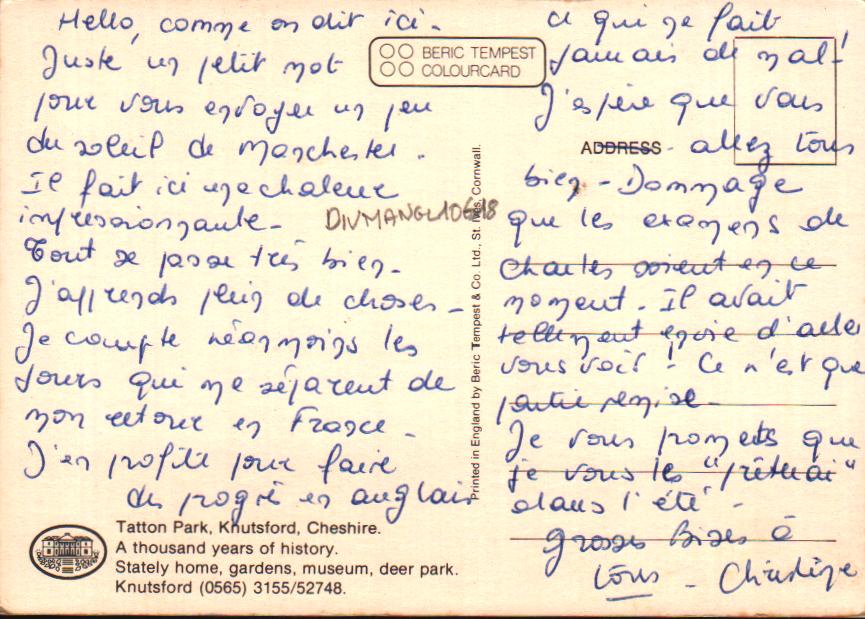 Hello, comme on dit ici -
Juste un petit mot
pour vous envoyer un peu
du soleil de Manchester -
Il fait ici une chaleur
impressionnante -
Tout se passe très bien -
J'apprends plein de choses -
Je compte néanmoins les
jours qui me séparent de
mon retour en France -
J'en profite pour faire
des progrès en anglais
ce qui ne fait
jamais de mal !
J'espère que vous
allez tous
bien - Dommage
que les examens de
Charles soient en ce
moment - Il avait
tellement envie d'aller
vous voir ! Ce n'est que
partie remise -
Je vous promets que
je vous les "prêterai"
dans l'été -
Grosses Bises à
tous - Christine
BERIC TEMPEST
COLOURCARD
ADDRESS
DIVMANGL10618
Printed in England by Beric Tempest & Co. Ltd., St. Ives, Cornwall.
Tatton Park, Knutsford, Cheshire.
A thousand years of history.
Stately home, gardens, museum, deer park.
Knutsford (0565) 3155/52748.